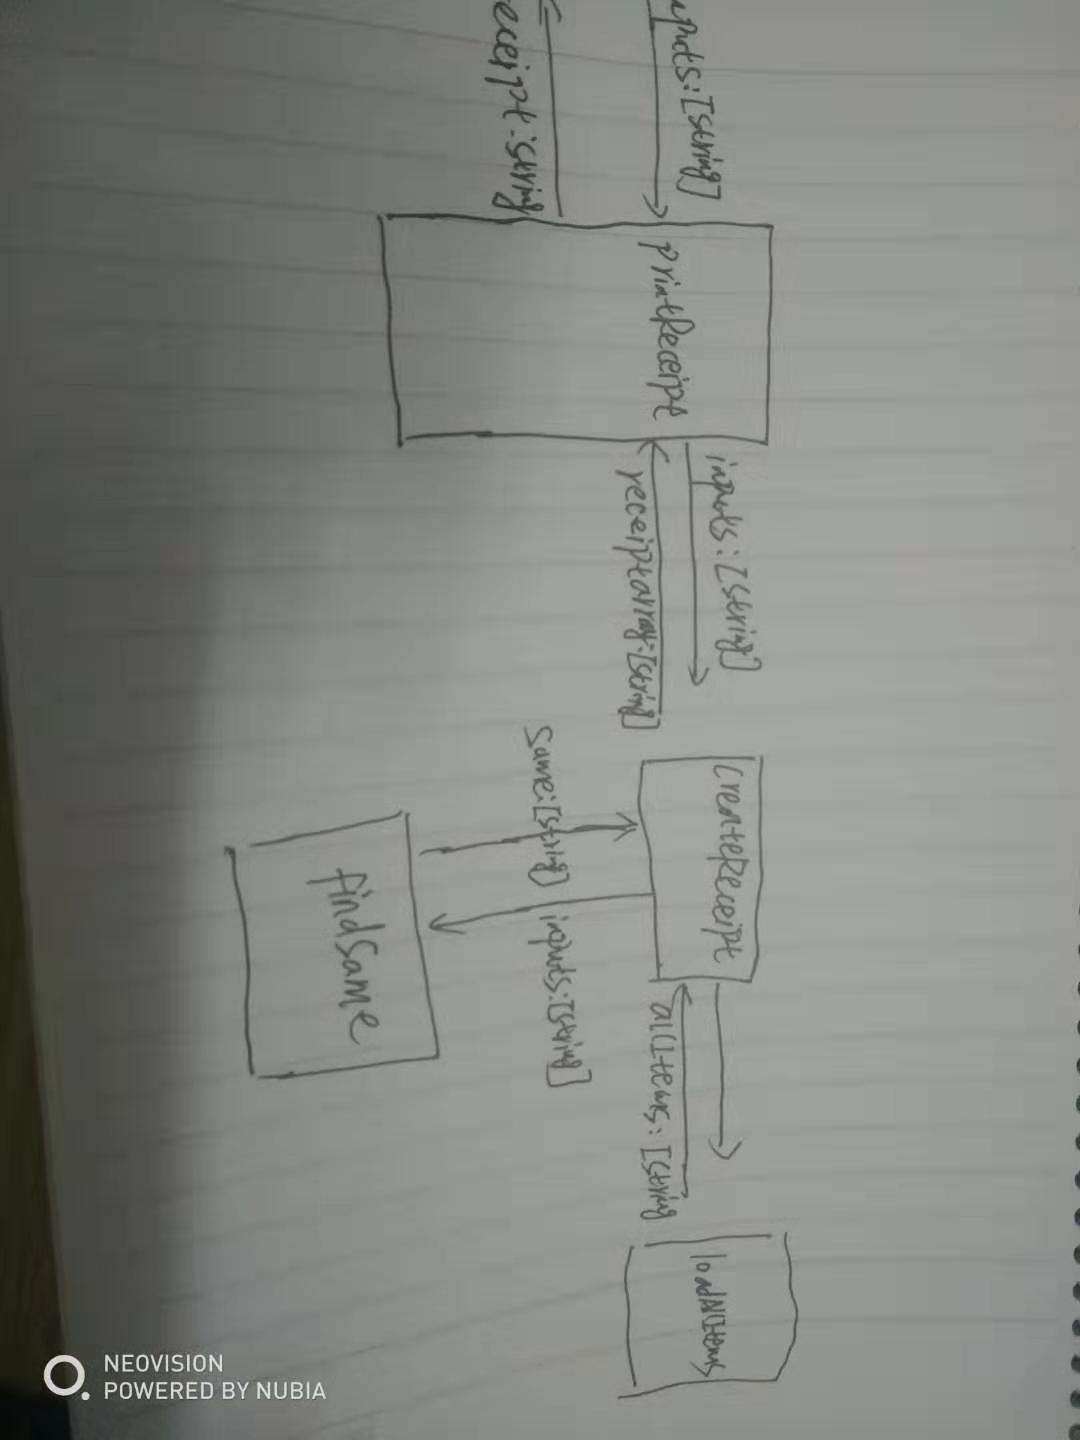 inputs:[string]
eceipt:string
printReceipt
inputs:[string]
receiptarray:[string]
CreateReceipt
Same:[string]
inputs:[string]
findSame
allItems:[string
loadAllItems
NEOVISION
POWERED BY NUBIA